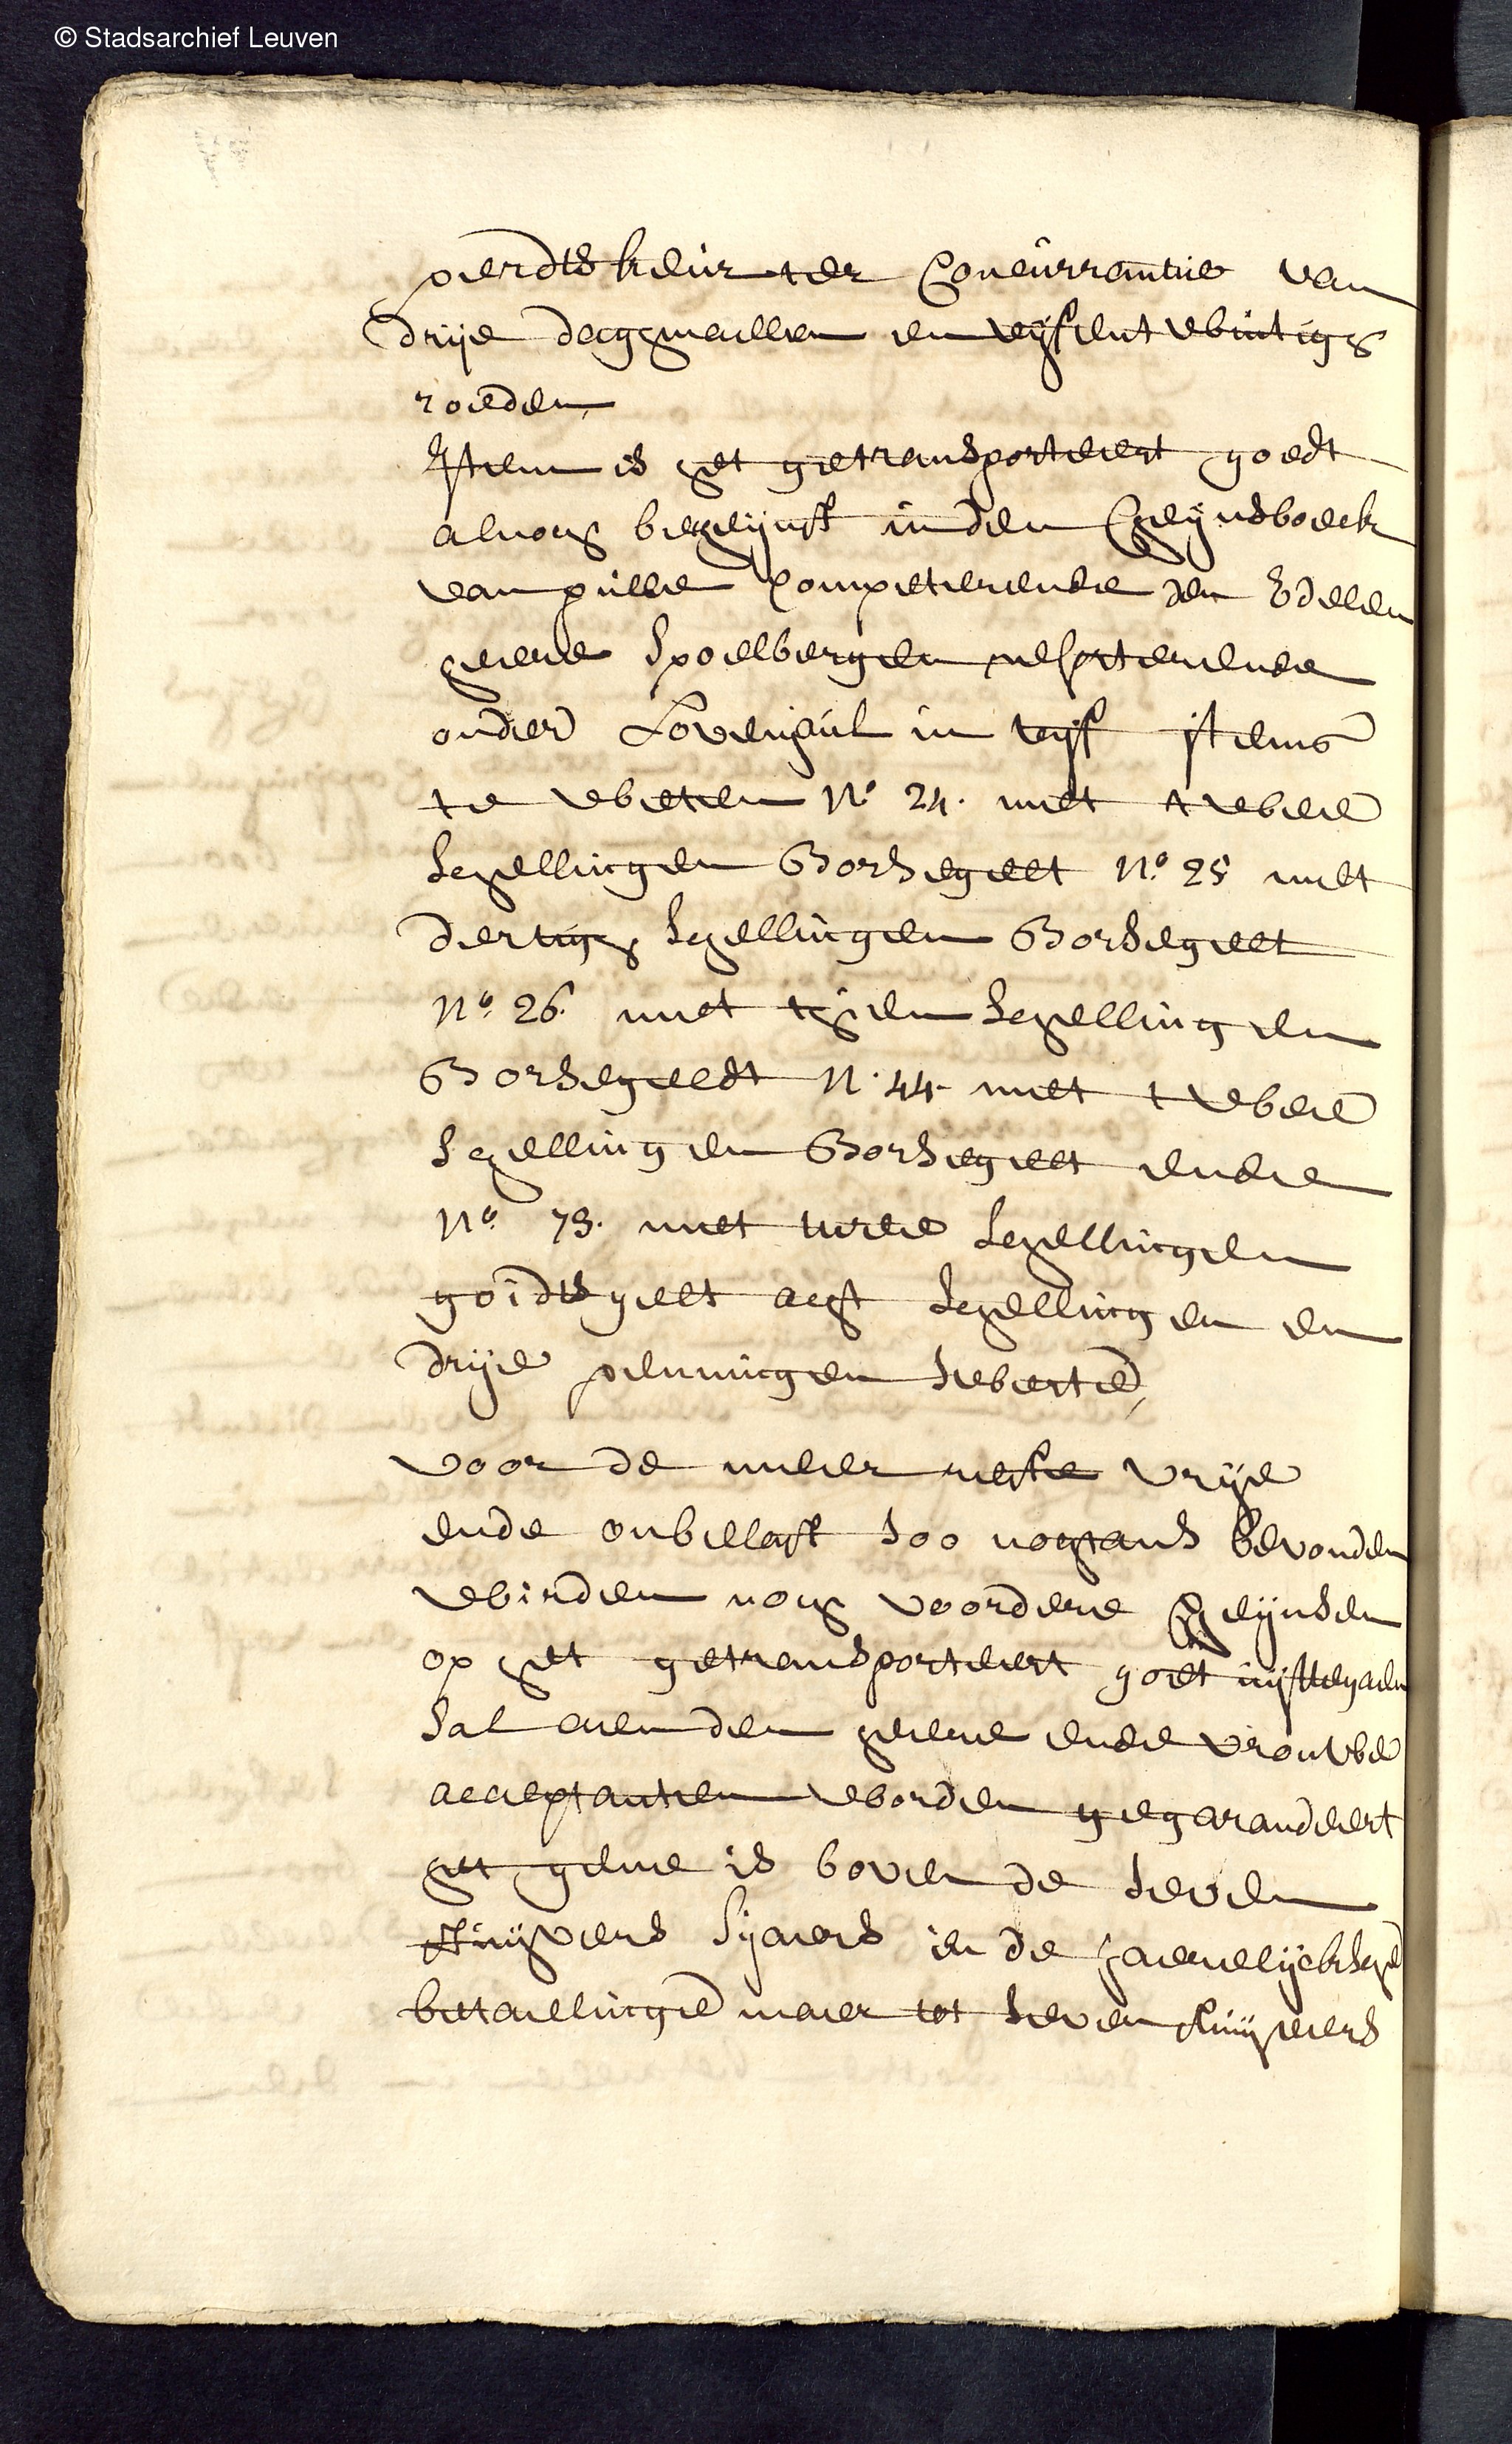 © Stadsarchief Leuven
perdtskeur ter Concurrantie van
drije daghmaellen en vijfentwintigh
roeden,
Item is het getransporteert goedt
alnogh bechijnst inden Chijnsboeck
van pulle Competerende den Edelen
heere Spoelberghen resorterende
onder Lovenjoul in vijf items
te weten No 24. met twee
schellingen Borsegelt No. 25 met
dertigh schellingen Borsegelt
No. 26. met thien schellingen
Borsegeldt N. 44. met twee
schellingen Borsegelt ende
No. 73. met twee schellingen
goidtsgelt acht schellingen en
drije penningen
voor de meer reste vrije
ende onbelast soo nogtans bevonden
wirden nogh voordere Chijnsen
op het getransporteert goet uijttegaen
sal aen den heere ende vrouwe
acceptanten worden gegarandeert
het gene is boven de seven
stuijvers sjaers in de jaerelijcksche
bettaellinge maer tot seven stuijvers